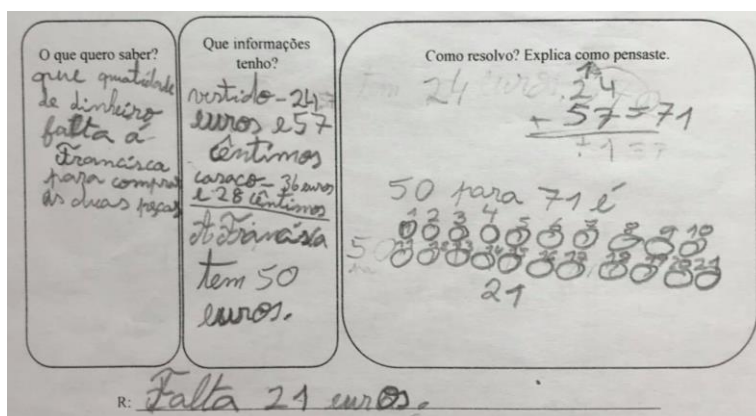 O que quero saber?
que quatidade
de dinheiro
falta á
Francisca
para comprar
as duas peças
Que informações
tenho?
vestido - 24
euros e 57
cêntimos
casaco - 36 euros
e 28 cêntimos
A Francisca
tem 50
euros.
Como resolvo? Explica como pensaste.
tem 24 euros
1
24
+ 57 = 71
+1=7
50 para 71 é
1 2 3 4 5 6 7 8 9 10
11 12 13 14 15 16 17 18 19 20 21
50
21
R: Falta 21 euros.